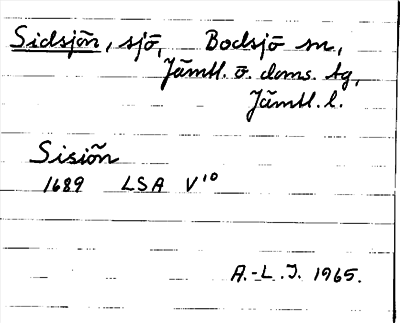 Sidsjön, sjö, Bodsjö sn,
Jämtl. ö. doms. tg,
Jämtl. l.
Sisiön
1689 LSA V¹⁰
A.-L. J. 1965.